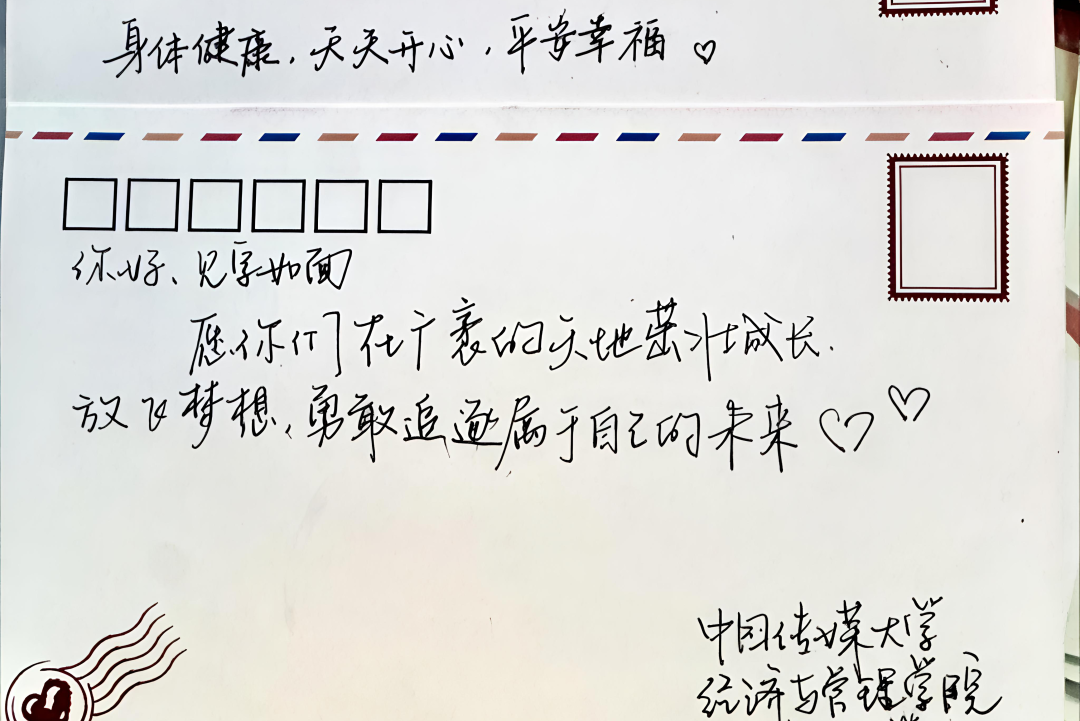 身体健康,天天开心,平安幸福
你好、见字如面
愿你们在广袤的天地茁壮成长.
放飞梦想,勇敢追逐属于自己的未来
中国传媒大学
经济与管理学院